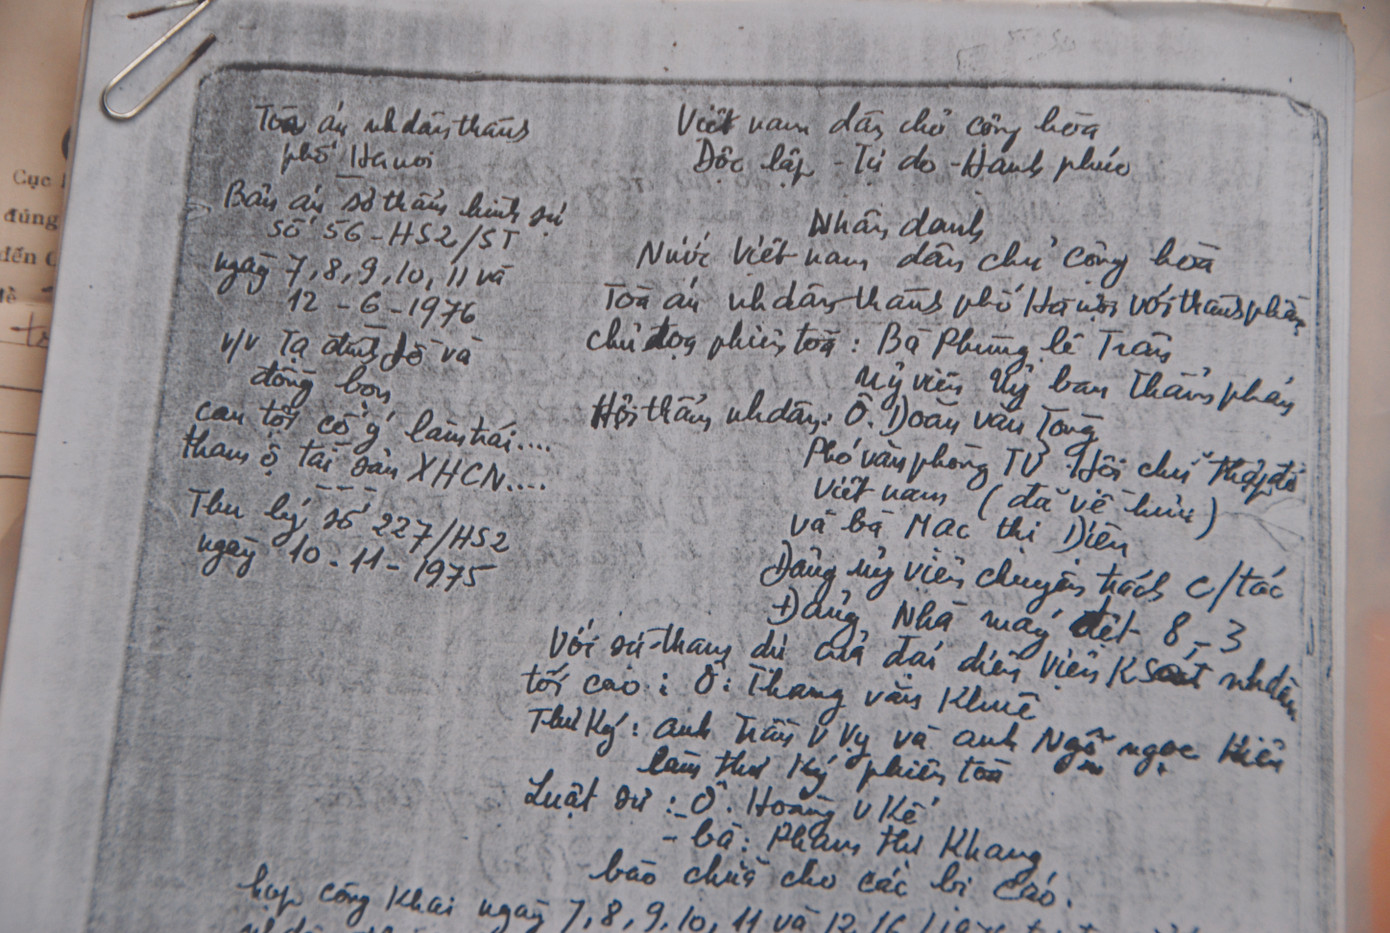 Toà án nhdân thành
phố Hanoi
Bản án sơ thẩm hình sự
số 56-HS2/ST
ngày 7,8,9,10,11 và
12-6-1976
v/v Tạ đình Đề và
đồng bọn
can tội cố ý làm trái....
tham ô tài sản XHCN....
Thụ lý số 227/HS2
ngày 10-11-1975
Việt nam dân chủ cộng hòa
Độc lập - Tự do - Hạnh phúc
Nhân danh
Nước Việt nam dân chủ cộng hoà
Toà án nhdân thành phố Hà nội với thành phần
chủ toạ phiên toà: Bà Phùng lê Trân
uỷ viên uỷ ban Thẩm phán
Hội thẩm nhdân: Ô. Doãn văn Tòng
Phó văn phòng TƯ Hội chữ thập đỏ
Việt nam (đã về hưu)
và bà Mac thị Diên
Đảng uỷ viên chuyên trách c/tác
Đảng Nhà máy dệt 8-3
Với sự tham dự của đại diện Viện K Soát nhdân
tối cao: Ô: Thang văn Khuê
Thư ký: anh Trần V Vy và anh Ngô ngọc Hiên
làm thư ký phiên toà
Luật sư: -Ô. Hoàng V Kế
- bà: Phạm thư Khang
bào chữa cho các bị cáo.
họp công khai ngày 7,8,9,10,11 và 12/6/
Cục
đúng
đến